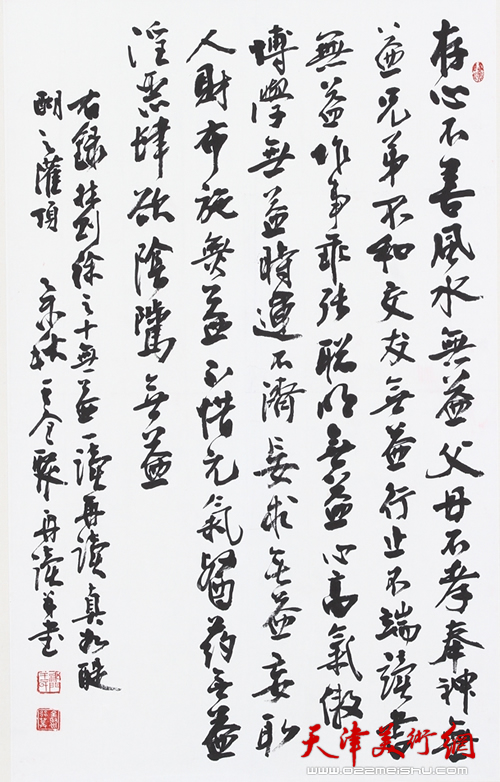 存心不善風水無益父母不孝奉神無
益兄弟不和交友無益行止不端讀書
無益作事乖張聪明無益心高氣傲
博學無益時運不濟妄求無益妄取
人財布施無益不惜元氣醫药無益
淫惡肆欲陰騭無益
右錄林則徐之十無益一讀再讀真如醍
醐之灌頂
天津美術網
www.022meishu.com